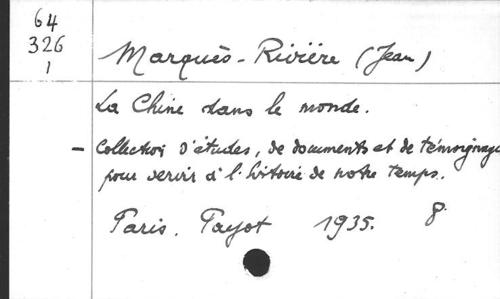 64
326
1
Marquès-Rivière (Jean)
La Chine dans le monde.
- Collection d'études, de documents et de témoignage
pour servir à l'histoire de notre temps.
Paris. Payot 1935. 8.